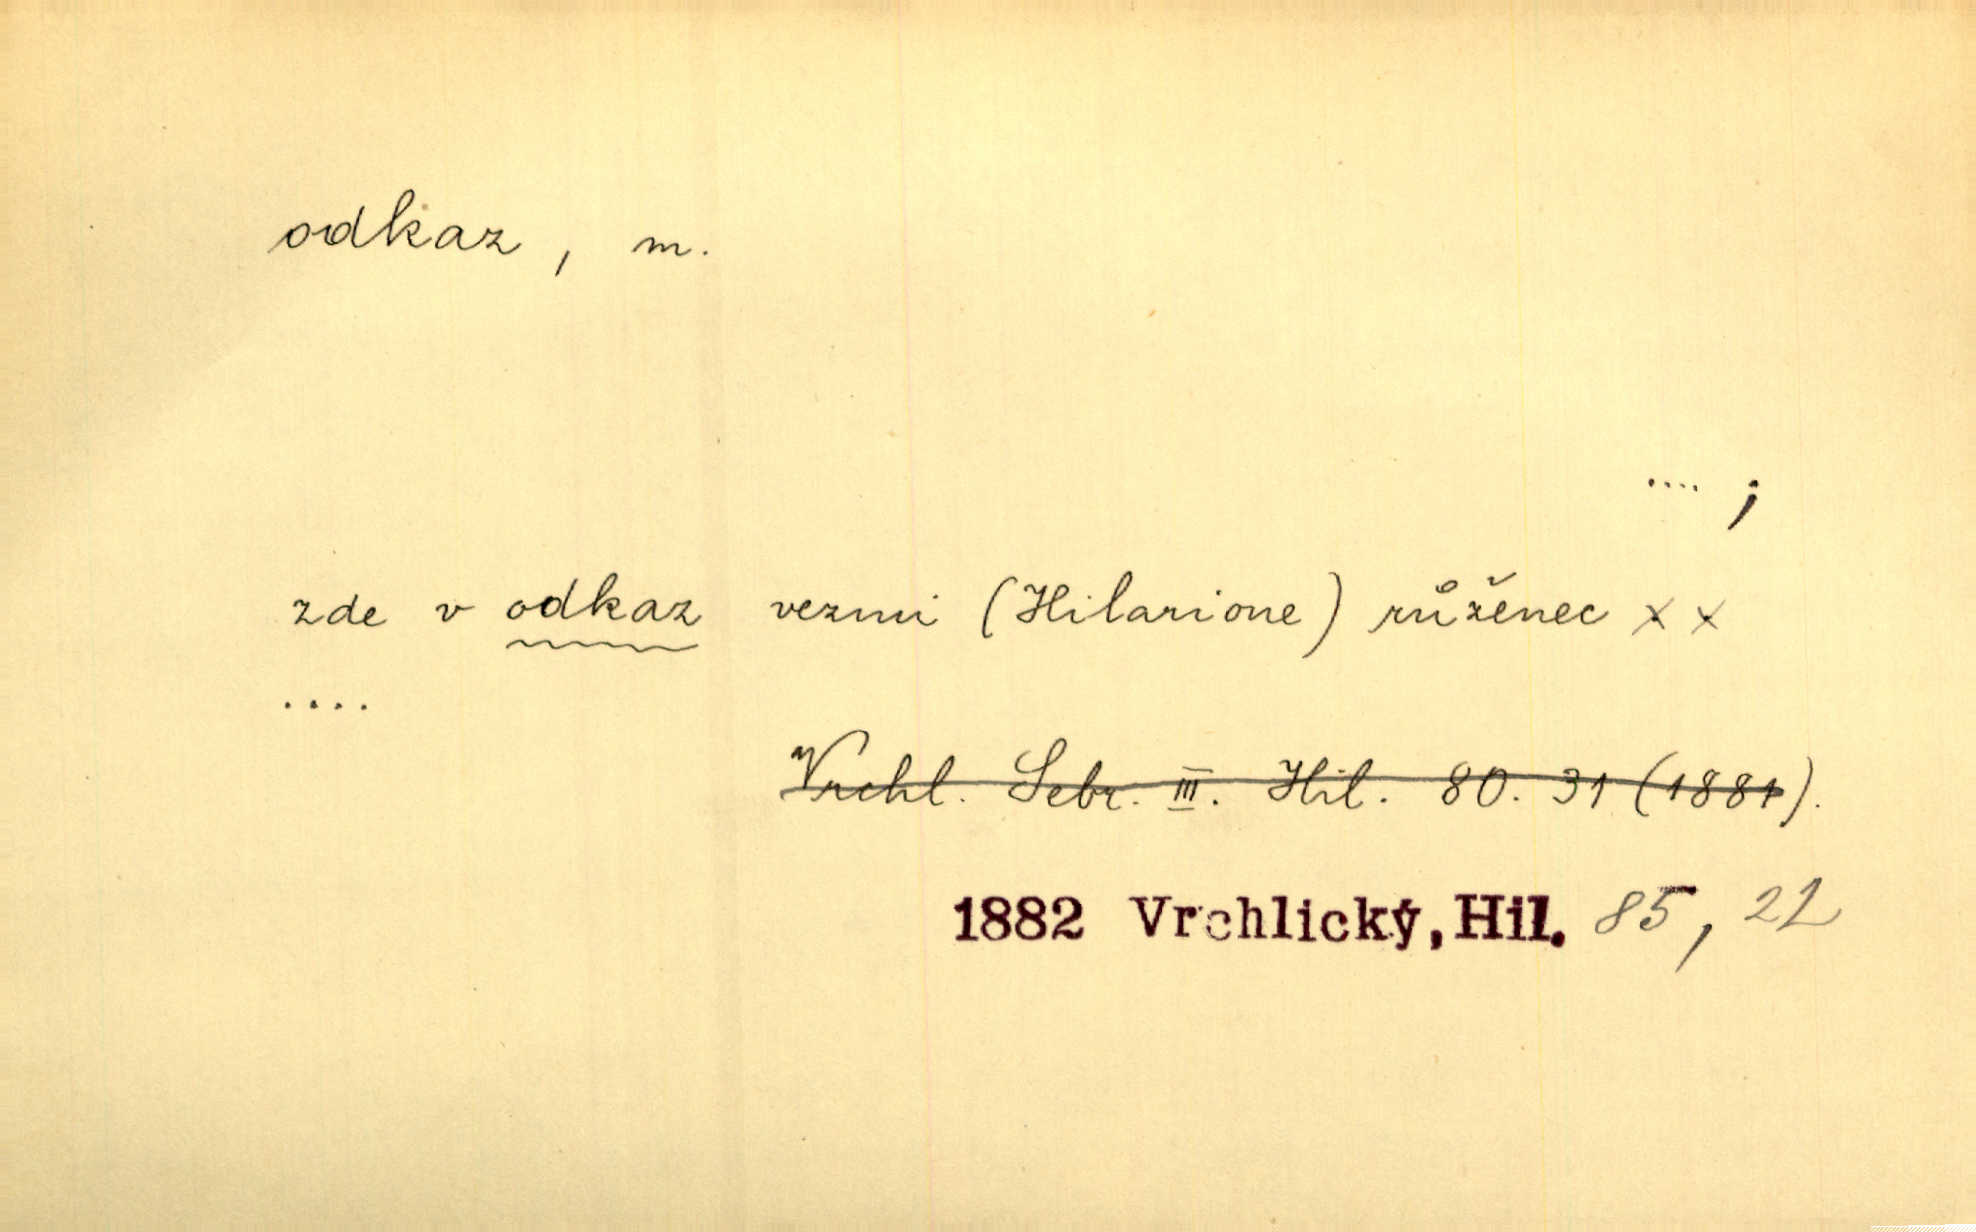 odkaz, m.
....;
zde v odkaz vezmi (Hilarione) růženec x x
....
Vrchl. Sebr. III. Hil. 80. 31 (1881).
1882 Vrchlický, Hil. 85, 22